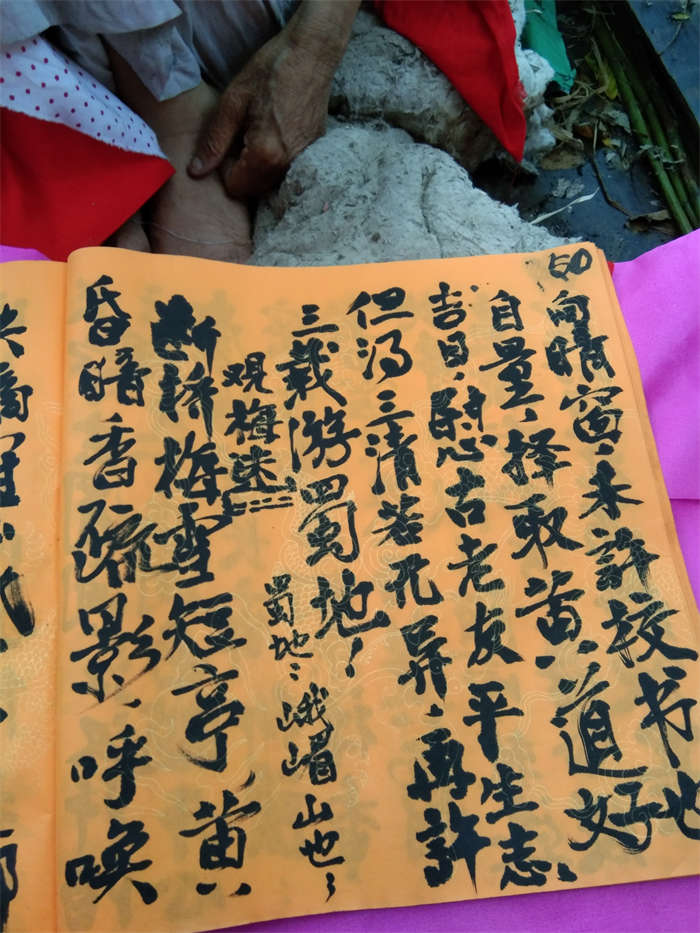 50
向晴窗、未許校书也
自量、择取黄、道好
吉日、慰古老友平生志、
但得三清若孔异、再許
三载游蜀地！
蜀地、峨嵋山也、
观梅迷
断桥梅雪短亭、黄、
昏暗香疏影、呼唤